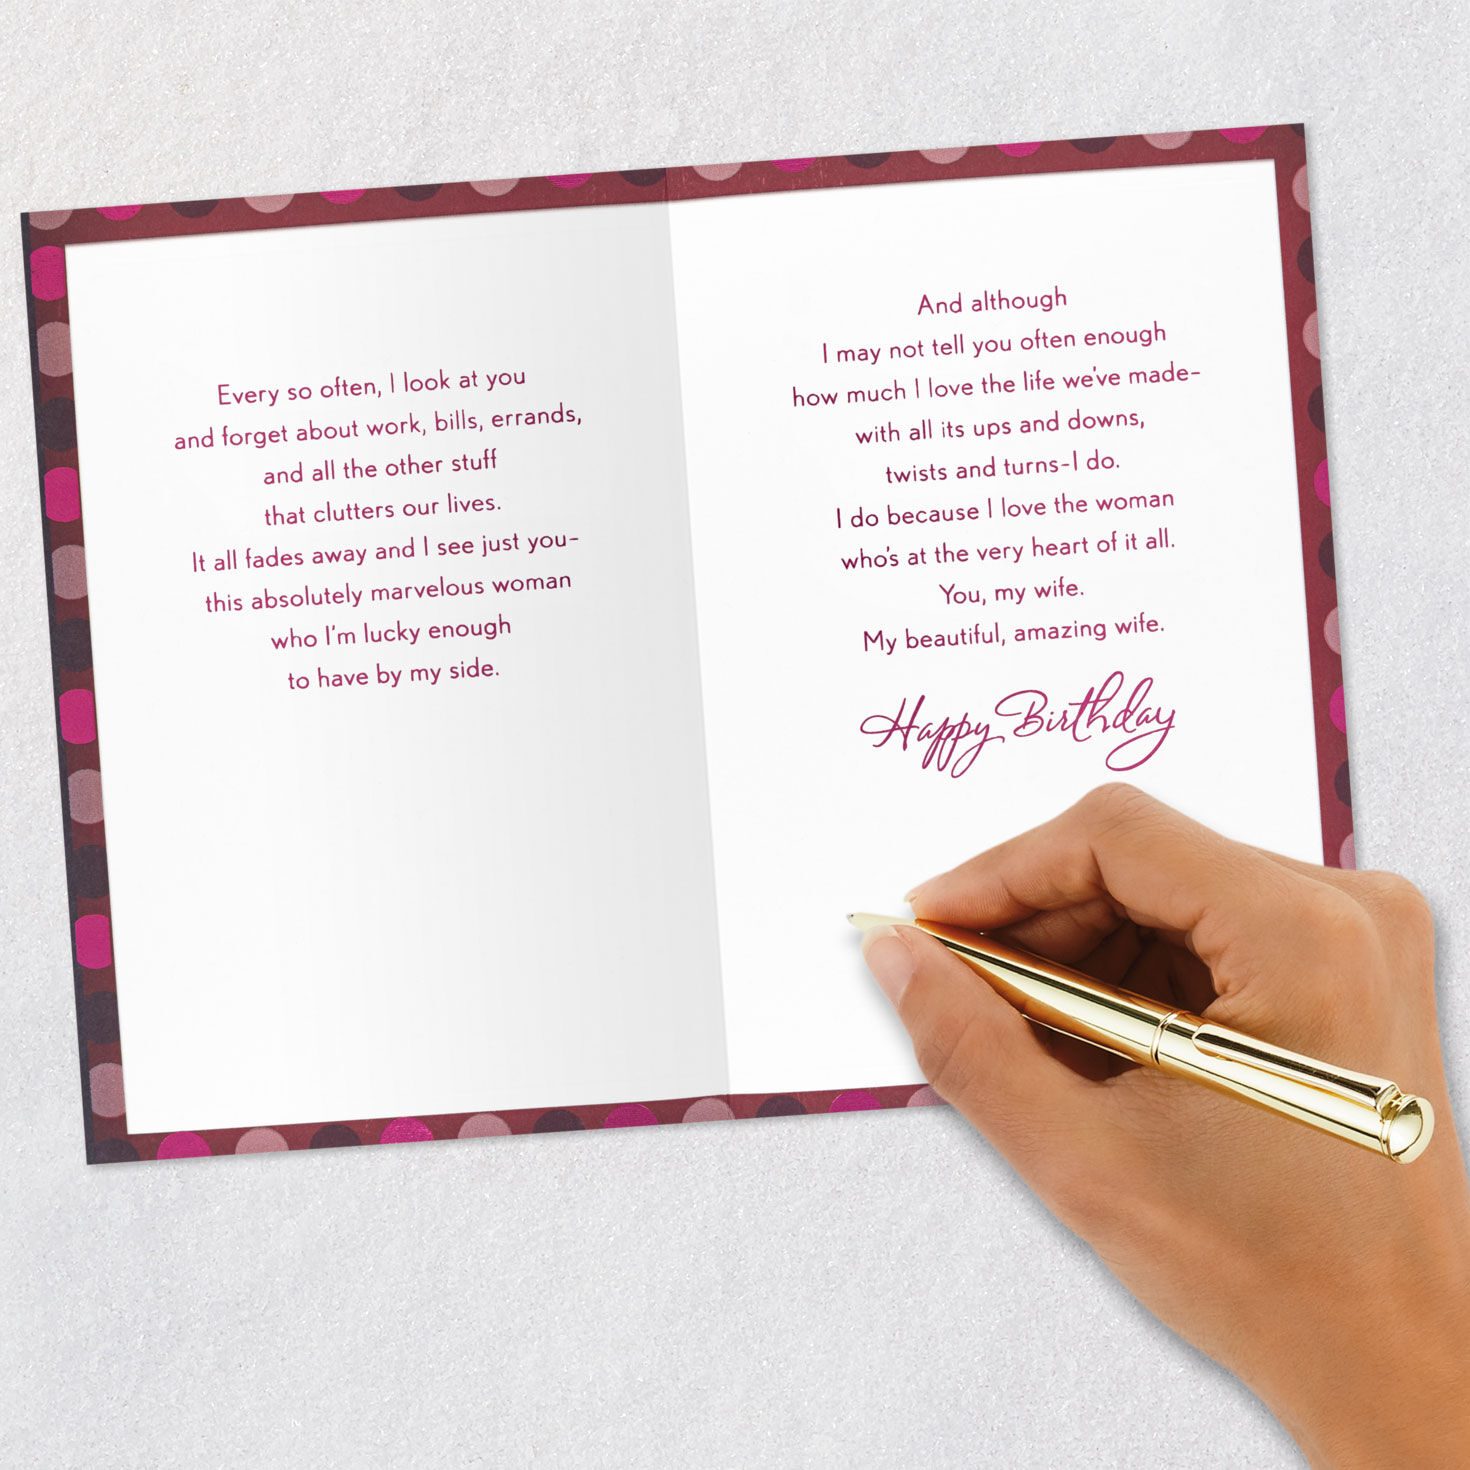 Every so often, I look at you
and forget about work, bills, errands,
and all the other stuff
that clutters our lives.
It all fades away and I see just you–
this absolutely marvelous woman
who I'm lucky enough
to have by my side.
And although
I may not tell you often enough
how much I love the life we've made–
with all its ups and downs,
twists and turns–I do.
I do because I love the woman
who's at the very heart of it all.
You, my wife.
My beautiful, amazing wife.
Happy Birthday